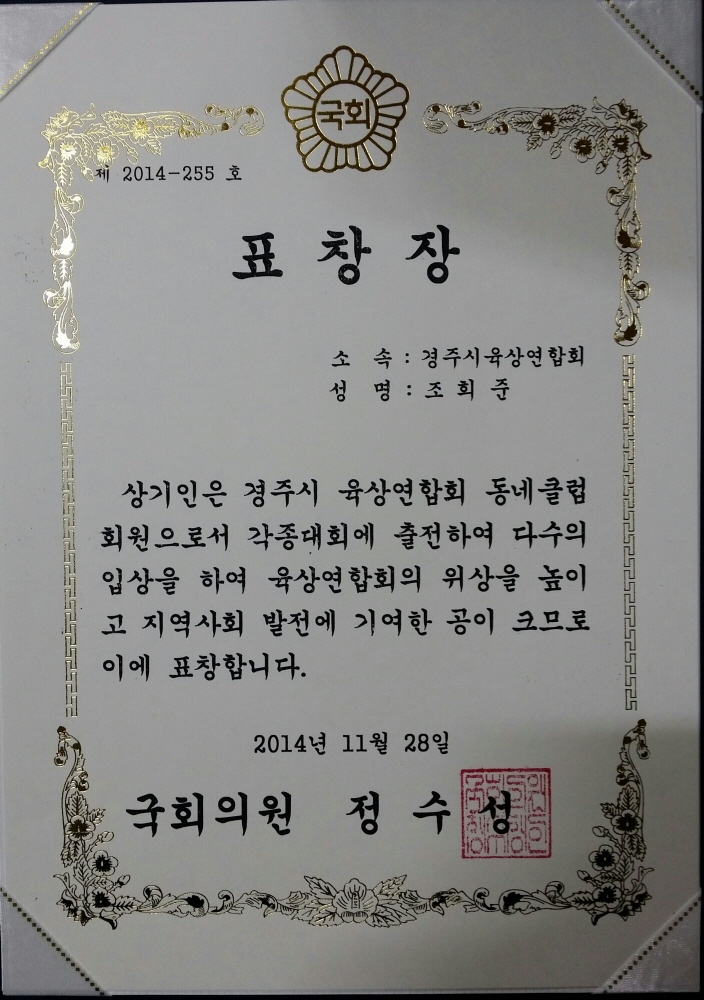 국회
제 2014-255 호
표 창 장
소 속 : 경주시육상연합회
성 명 : 조 희 준
상기인은 경주시 육상연합회 동네클럽
회원으로서 각종대회에 출전하여 다수의
입상을 하여 육상연합회의 위상을 높이
고 지역사회 발전에 기여한 공이 크므로
이에 표창합니다.
2014년 11월 28일
국회의원 정 수 성